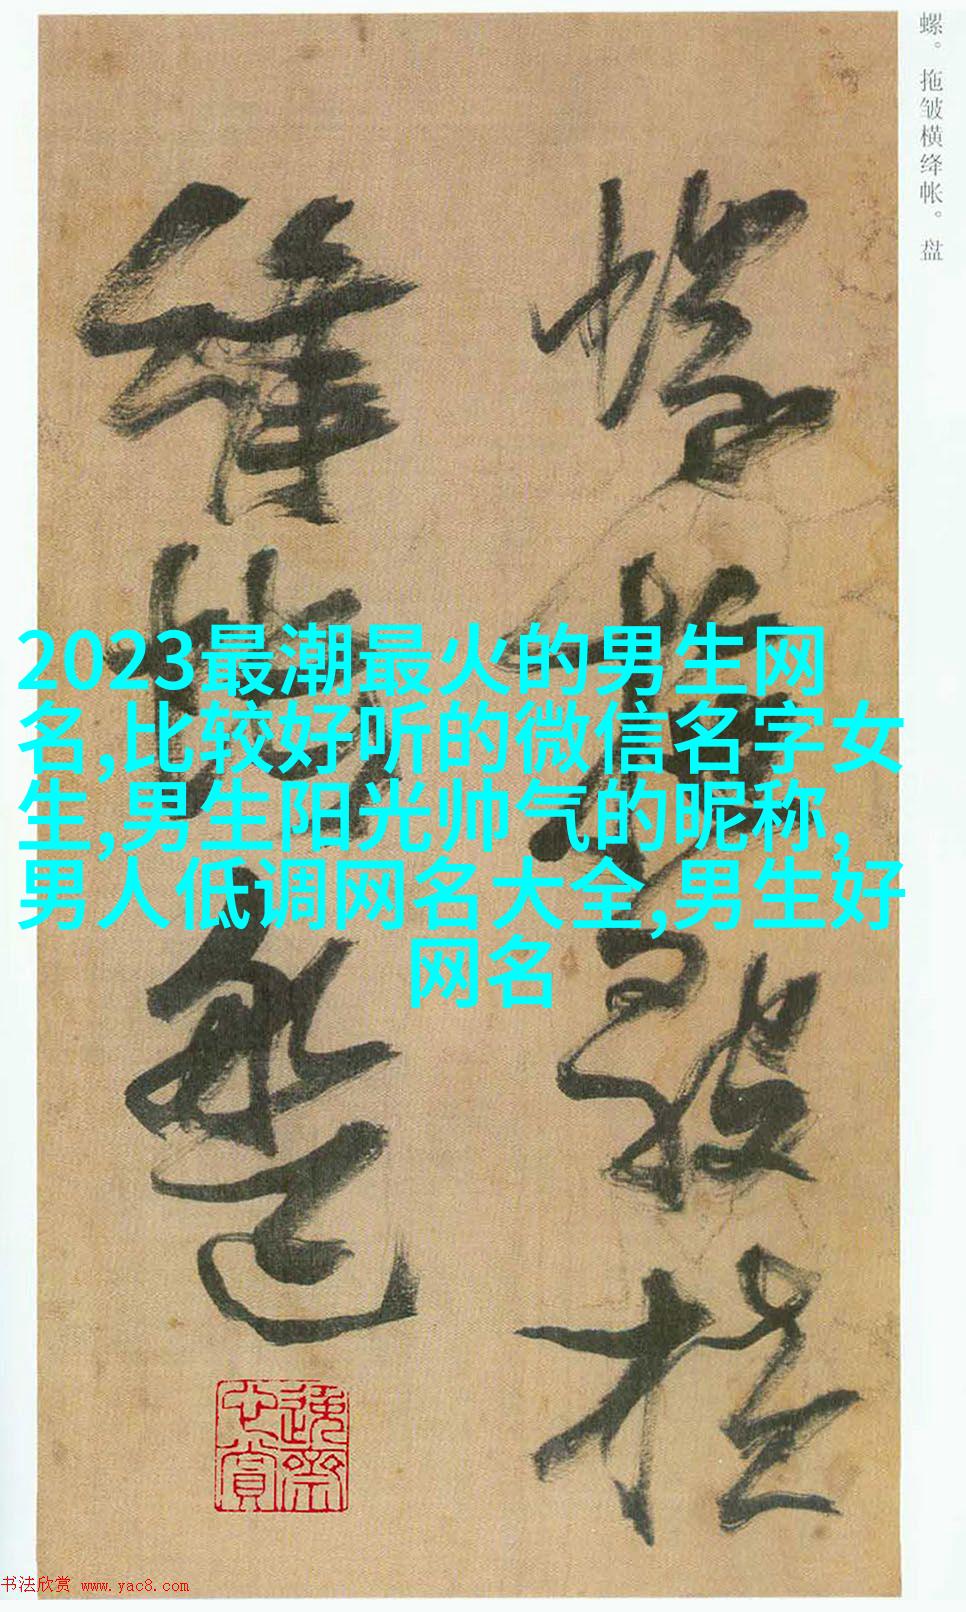 螺。拖皱横绛帐。盘
螺横皱拖
绛帐盘
2023最潮最火的男生网
名,比较好听的微信名字女
生,男生阳光帅气的昵称,
男人低调网名大全,男生好
网名
书法欣赏 www.yac8.com